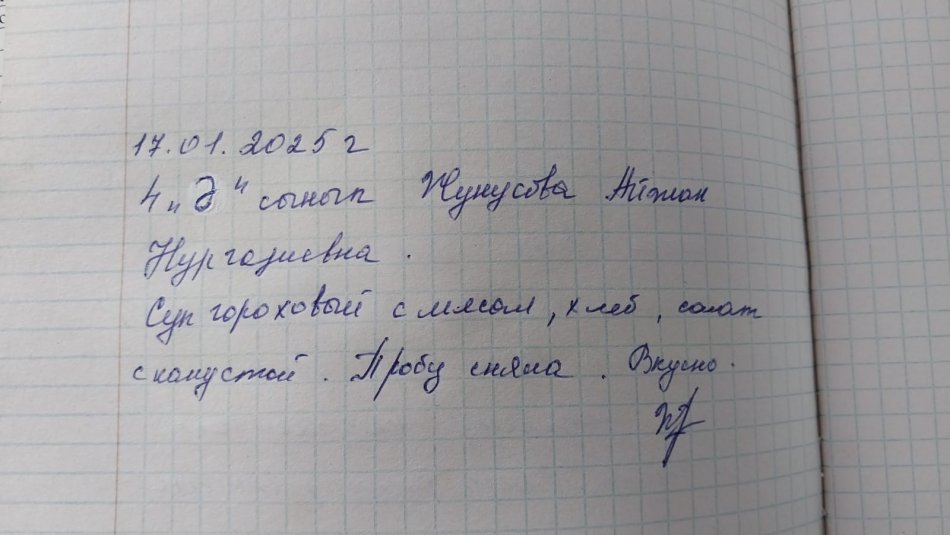 17.01.2025 г
4 „Ә“ сынып Жунусова Айжан
Нургазиевна.
Суп гороховый с мясом, хлеб, салат
с капустой. Пробу сняла. Вкусно.